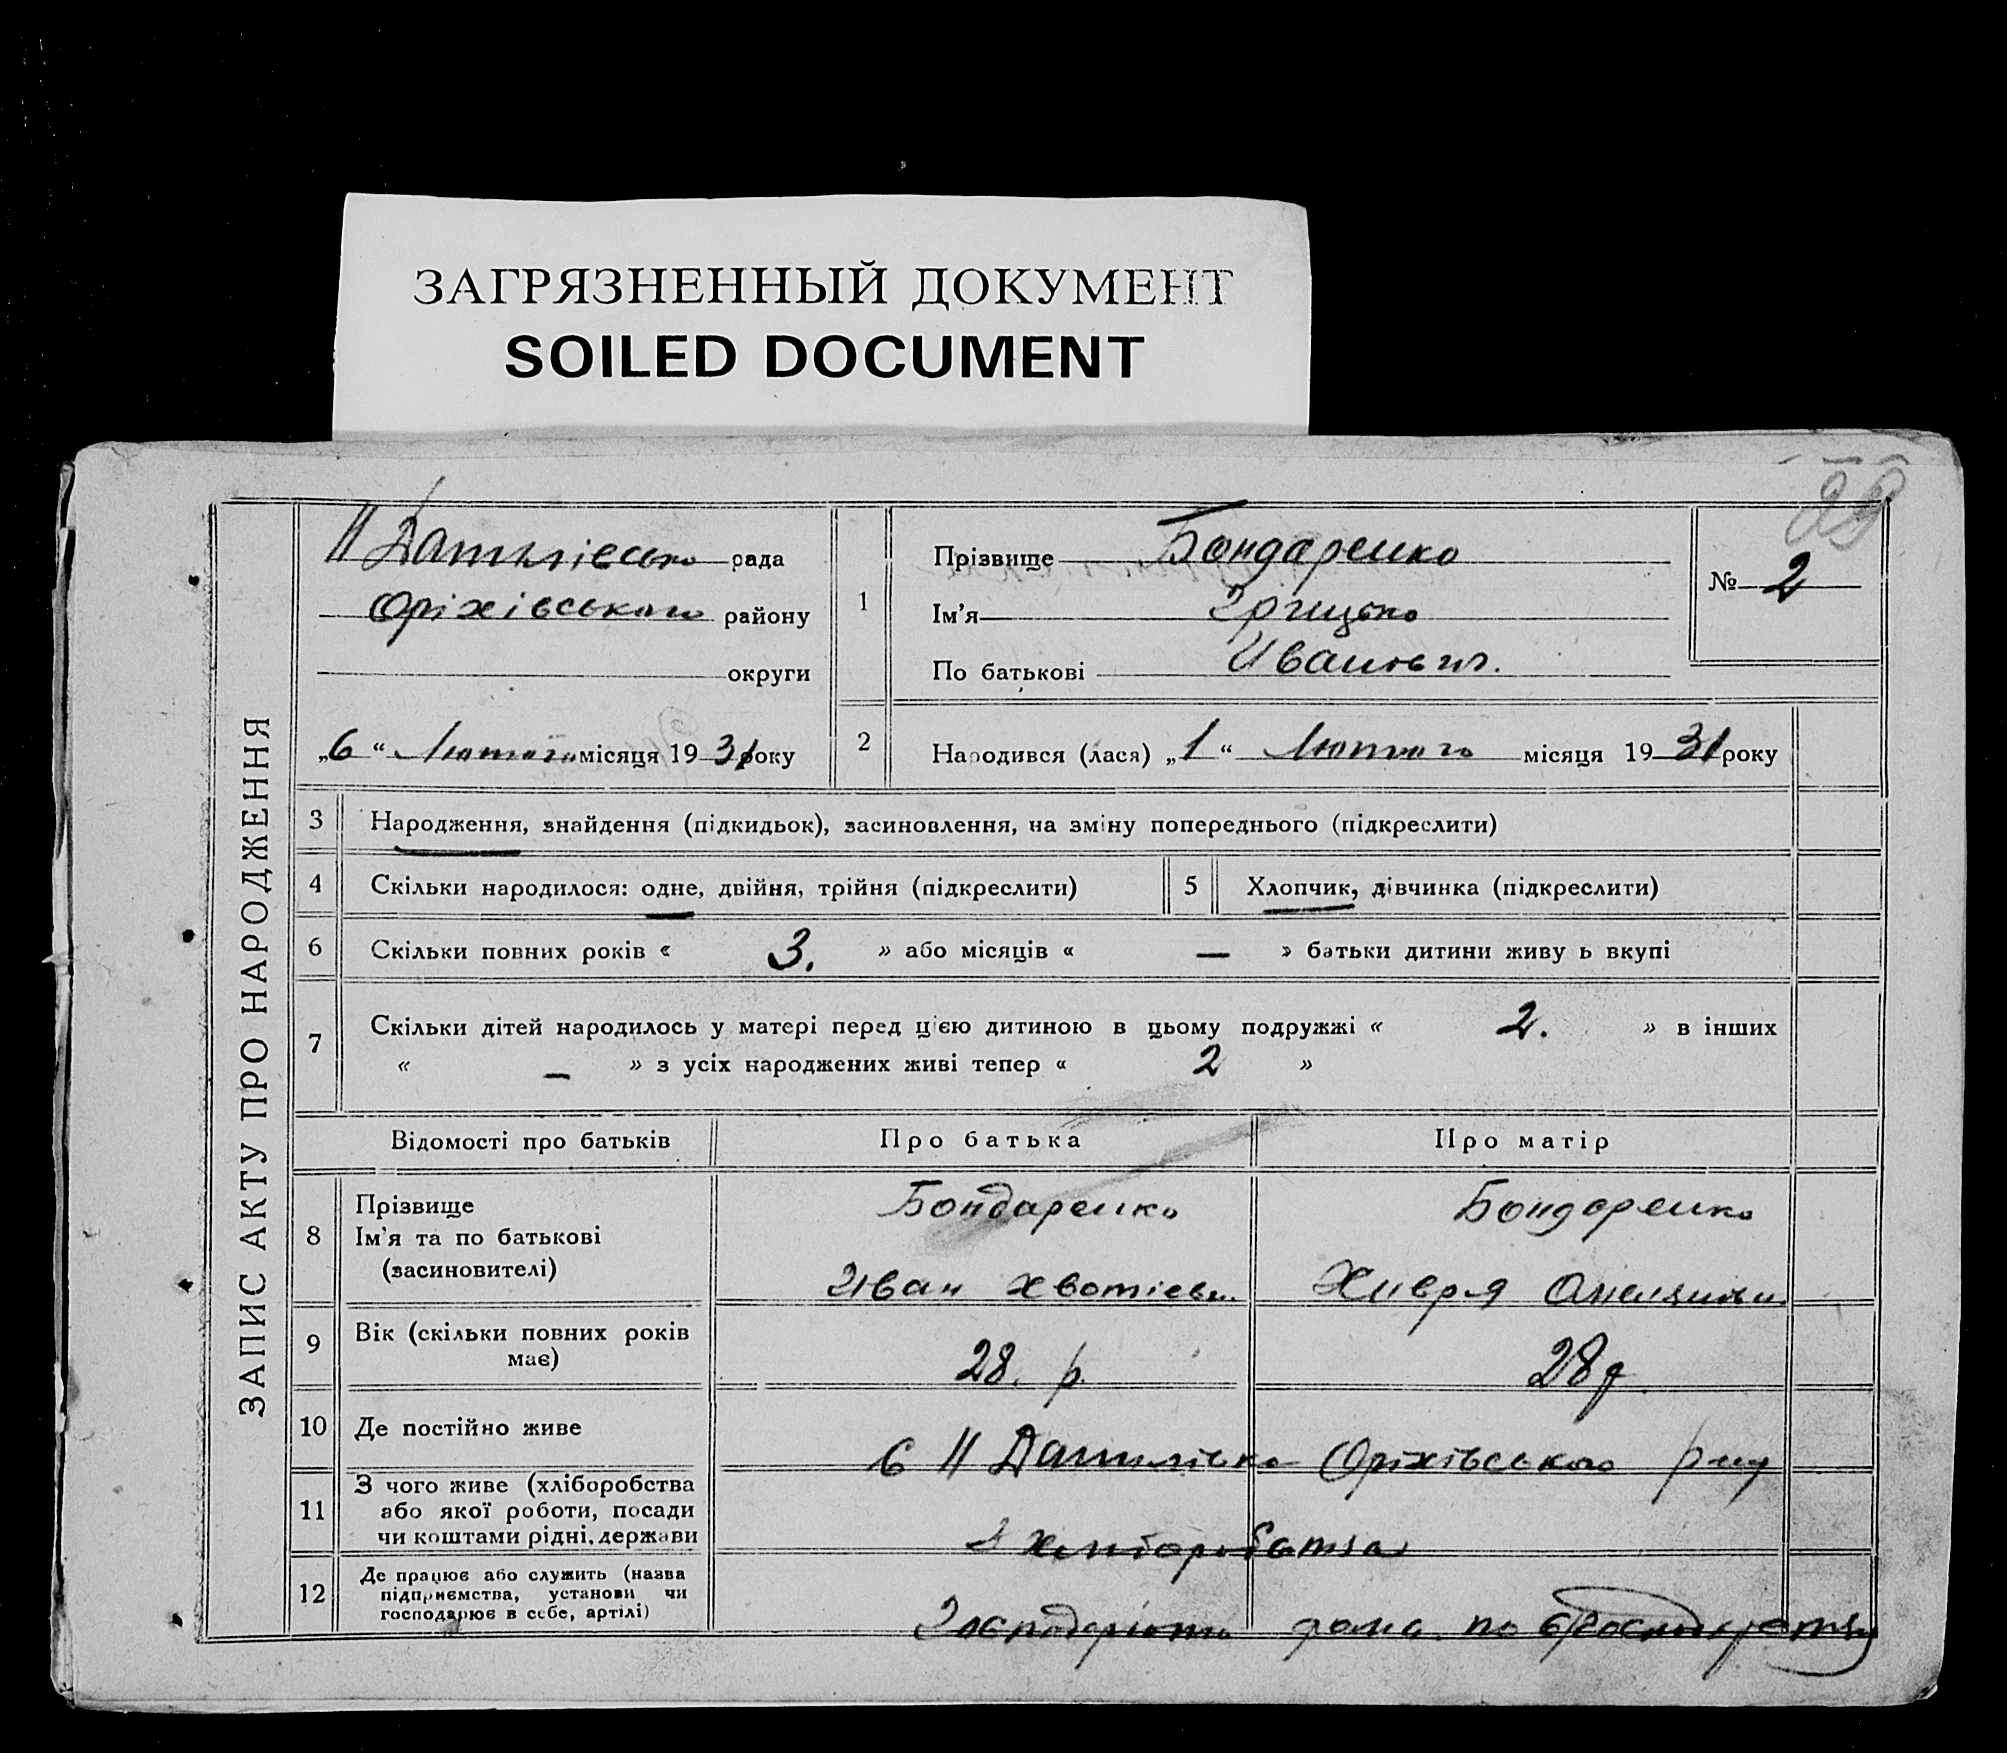 ЗАГРЯЗНЕННЫЙ ДОКУМЕНТ
SOILED DOCUMENT
ЗАПИС АКТУ ПРО НАРОДЖЕННЯ
рада
Оріхівського району
округи
„6“ Лютого місяця 1931 року
1
Прізвище Бондаренко
Ім'я Грицько
По батькові Иванович.
№ 2
2
Народився (лася) „1“ Лютого місяця 1931 року
3 Народження, знайдення (підкидьок), засиновлення, на зміну попереднього (підкреслити)
4 Скільки народилося: одне, двійня, трійня (підкреслити) 5 Хлопчик, дівчинка (підкреслити)
6 Скільки повних років « 3. » або місяців « — » батьки дитини живу ь вкупі
7 Скільки дітей народилось у матері перед цією дитиною в цьому подружжі « 2. » в інших
« — » з усіх народжених живі тепер « 2 »
Відомості про батьків Про батька Про матір
8 Прізвище Бондаренко Бондаренко
Ім'я та по батькові
(засиновителі) Иван Хвотієв. Хивря
9 Вік (скільки повних років має) 28. р. 28 р
10 Де постійно живе с Оріхівського р-ну
11 З чого живе (хліборобства
або якої роботи, посади
чи коштами рідні, держави З хліборобства
12 Де працює або служить (назва
підприємства, установи чи
господарює в себе, артілі) дома по